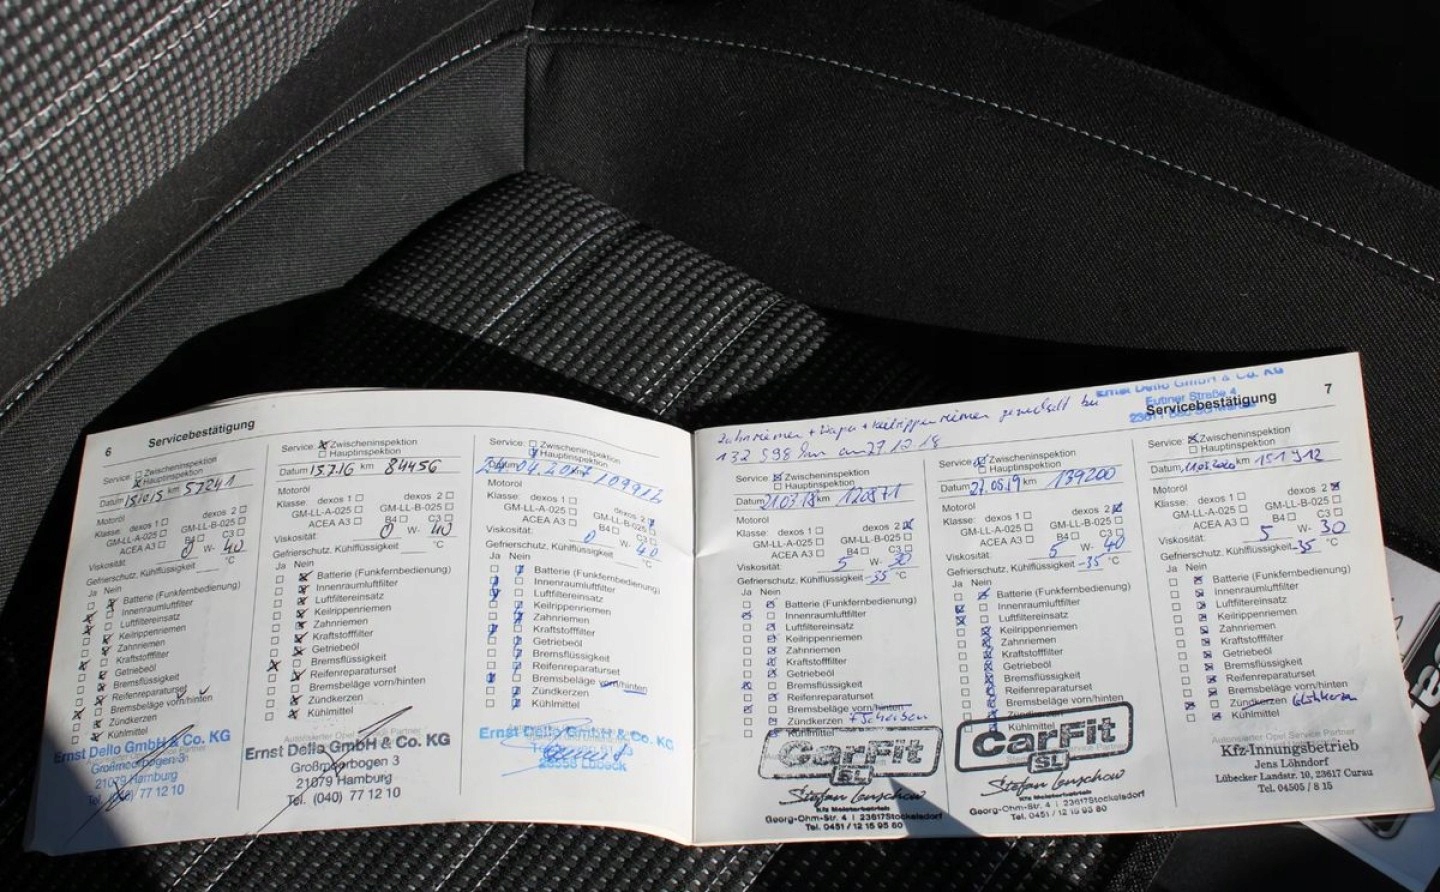 6
Servicebestätigung
Service: Zwischeninspektion
Hauptinspektion
Datum km 57241
Motoröl
Klasse: dexos 1 dexos 2
GM-LL-A-025 GM-LL-B-025
ACEA A3 B4 C3
Viskosität: 0 W- 40
Gefrierschutz, Kühlflüssigkeit °C
Ja Nein
Batterie (Funkfernbedienung)
Innenraumluftfilter
Luftfiltereinsatz
Keilrippenriemen
Zahnriemen
Kraftstofffilter
Getriebeöl
Bremsflüssigkeit
Reifenreparaturset
Bremsbeläge vorn/hinten
Zündkerzen
Kühlmittel
Ernst Dello GmbH & Co. KG
Großmoorbogen 3
21079 Hamburg
Tel. (040) 77 12 10
Service: Zwischeninspektion
Hauptinspektion
Datum 13.7.16 km 84456
Motoröl
Klasse: dexos 1 dexos 2
GM-LL-A-025 GM-LL-B-025
ACEA A3 B4 C3
Viskosität: 0 W- 40
Gefrierschutz, Kühlflüssigkeit °C
Ja Nein
Batterie (Funkfernbedienung)
Innenraumluftfilter
Luftfiltereinsatz
Keilrippenriemen
Zahnriemen
Kraftstofffilter
Getriebeöl
Bremsflüssigkeit
Reifenreparaturset
Bremsbeläge vorn/hinten
Zündkerzen
Kühlmittel
Autorisierter Opel Service Partner
Ernst Dello GmbH & Co. KG
Großmoorbogen 3
21079 Hamburg
Tel. (040) 77 12 10
Service: Zwischeninspektion
Hauptinspektion
Datum 04.2017 km
Motoröl
Klasse: dexos 1 dexos 2
GM-LL-A-025 GM-LL-B-025
ACEA A3 B4 C3
Viskosität: 0 W- 40
Gefrierschutz, Kühlflüssigkeit °C
Ja Nein
Batterie (Funkfernbedienung)
Innenraumluftfilter
Luftfiltereinsatz
Keilrippenriemen
Zahnriemen
Kraftstofffilter
Getriebeöl
Bremsflüssigkeit
Reifenreparaturset
Bremsbeläge vorn/hinten
Zündkerzen
Kühlmittel
Ernst Dello GmbH & Co. KG
Lübeck
7
Servicebestätigung
Ernst Dello GmbH & Co. KG
Zahnriemen + Wapu + Keilrippenriemen gewechselt bei
132 998 km am 27.12.18
Service: Zwischeninspektion
Hauptinspektion
Datum 21.03.18 km 120871
Motoröl
Klasse: dexos 1 dexos 2
GM-LL-A-025 GM-LL-B-025
ACEA A3 B4 C3
Viskosität: 5 W- 30
Gefrierschutz, Kühlflüssigkeit -35 °C
Ja Nein
Batterie (Funkfernbedienung)
Innenraumluftfilter
Luftfiltereinsatz
Keilrippenriemen
Zahnriemen
Kraftstofffilter
Getriebeöl
Bremsflüssigkeit
Reifenreparaturset
Bremsbeläge vorn/hinten
Zündkerzen + Scheiben
Kühlmittel
CarFit
SL
Stefan Lenschow
Kfz Meisterbetrieb
Georg-Ohm-Str. 4 | 23617 Stockelsdorf
Tel. 0451 / 12 15 95 80
Service: Zwischeninspektion
Hauptinspektion
Datum 27.05.19 km 139200
Motoröl
Klasse: dexos 1 dexos 2
GM-LL-A-025 GM-LL-B-025
ACEA A3 B4 C3
Viskosität: 5 W- 40
Gefrierschutz, Kühlflüssigkeit -35 °C
Ja Nein
Batterie (Funkfernbedienung)
Innenraumluftfilter
Luftfiltereinsatz
Keilrippenriemen
Zahnriemen
Kraftstofffilter
Getriebeöl
Bremsflüssigkeit
Reifenreparaturset
Bremsbeläge vorn/hinten
Zündkerzen
Kühlmittel
CarFit
SL
Stefan Lenschow
Kfz Meisterbetrieb
Georg-Ohm-Str. 4 | 23617 Stockelsdorf
Tel. 0451 / 12 15 95 80
Service: Zwischeninspektion
Hauptinspektion
Datum km 151912
Motoröl
Klasse: dexos 1 dexos 2
GM-LL-A-025 GM-LL-B-025
ACEA A3 B4 C3
Viskosität: 5 W- 30
Gefrierschutz, Kühlflüssigkeit -35 °C
Ja Nein
Batterie (Funkfernbedienung)
Innenraumluftfilter
Luftfiltereinsatz
Keilrippenriemen
Zahnriemen
Kraftstofffilter
Getriebeöl
Bremsflüssigkeit
Reifenreparaturset
Bremsbeläge vorn/hinten
Zündkerzen Glühkerzen
Kühlmittel
Autorisierter Opel Service Partner
Kfz-Innungsbetrieb
Jens Löhndorf
Lübecker Landstr. 10, 23617 Curau
Tel. 04505 / 8 15